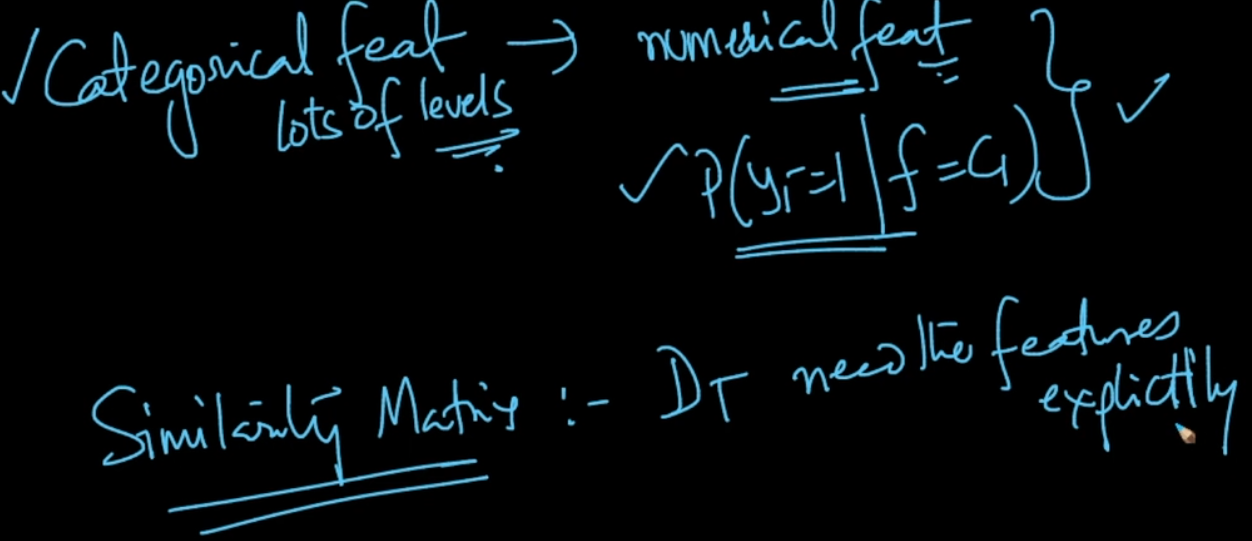 ✓ Categorical feat → numerical feat
lots of levels
✓ P(yi=1 | f=C1) ✓
Similarity Matrix :- DT need the features
explictily